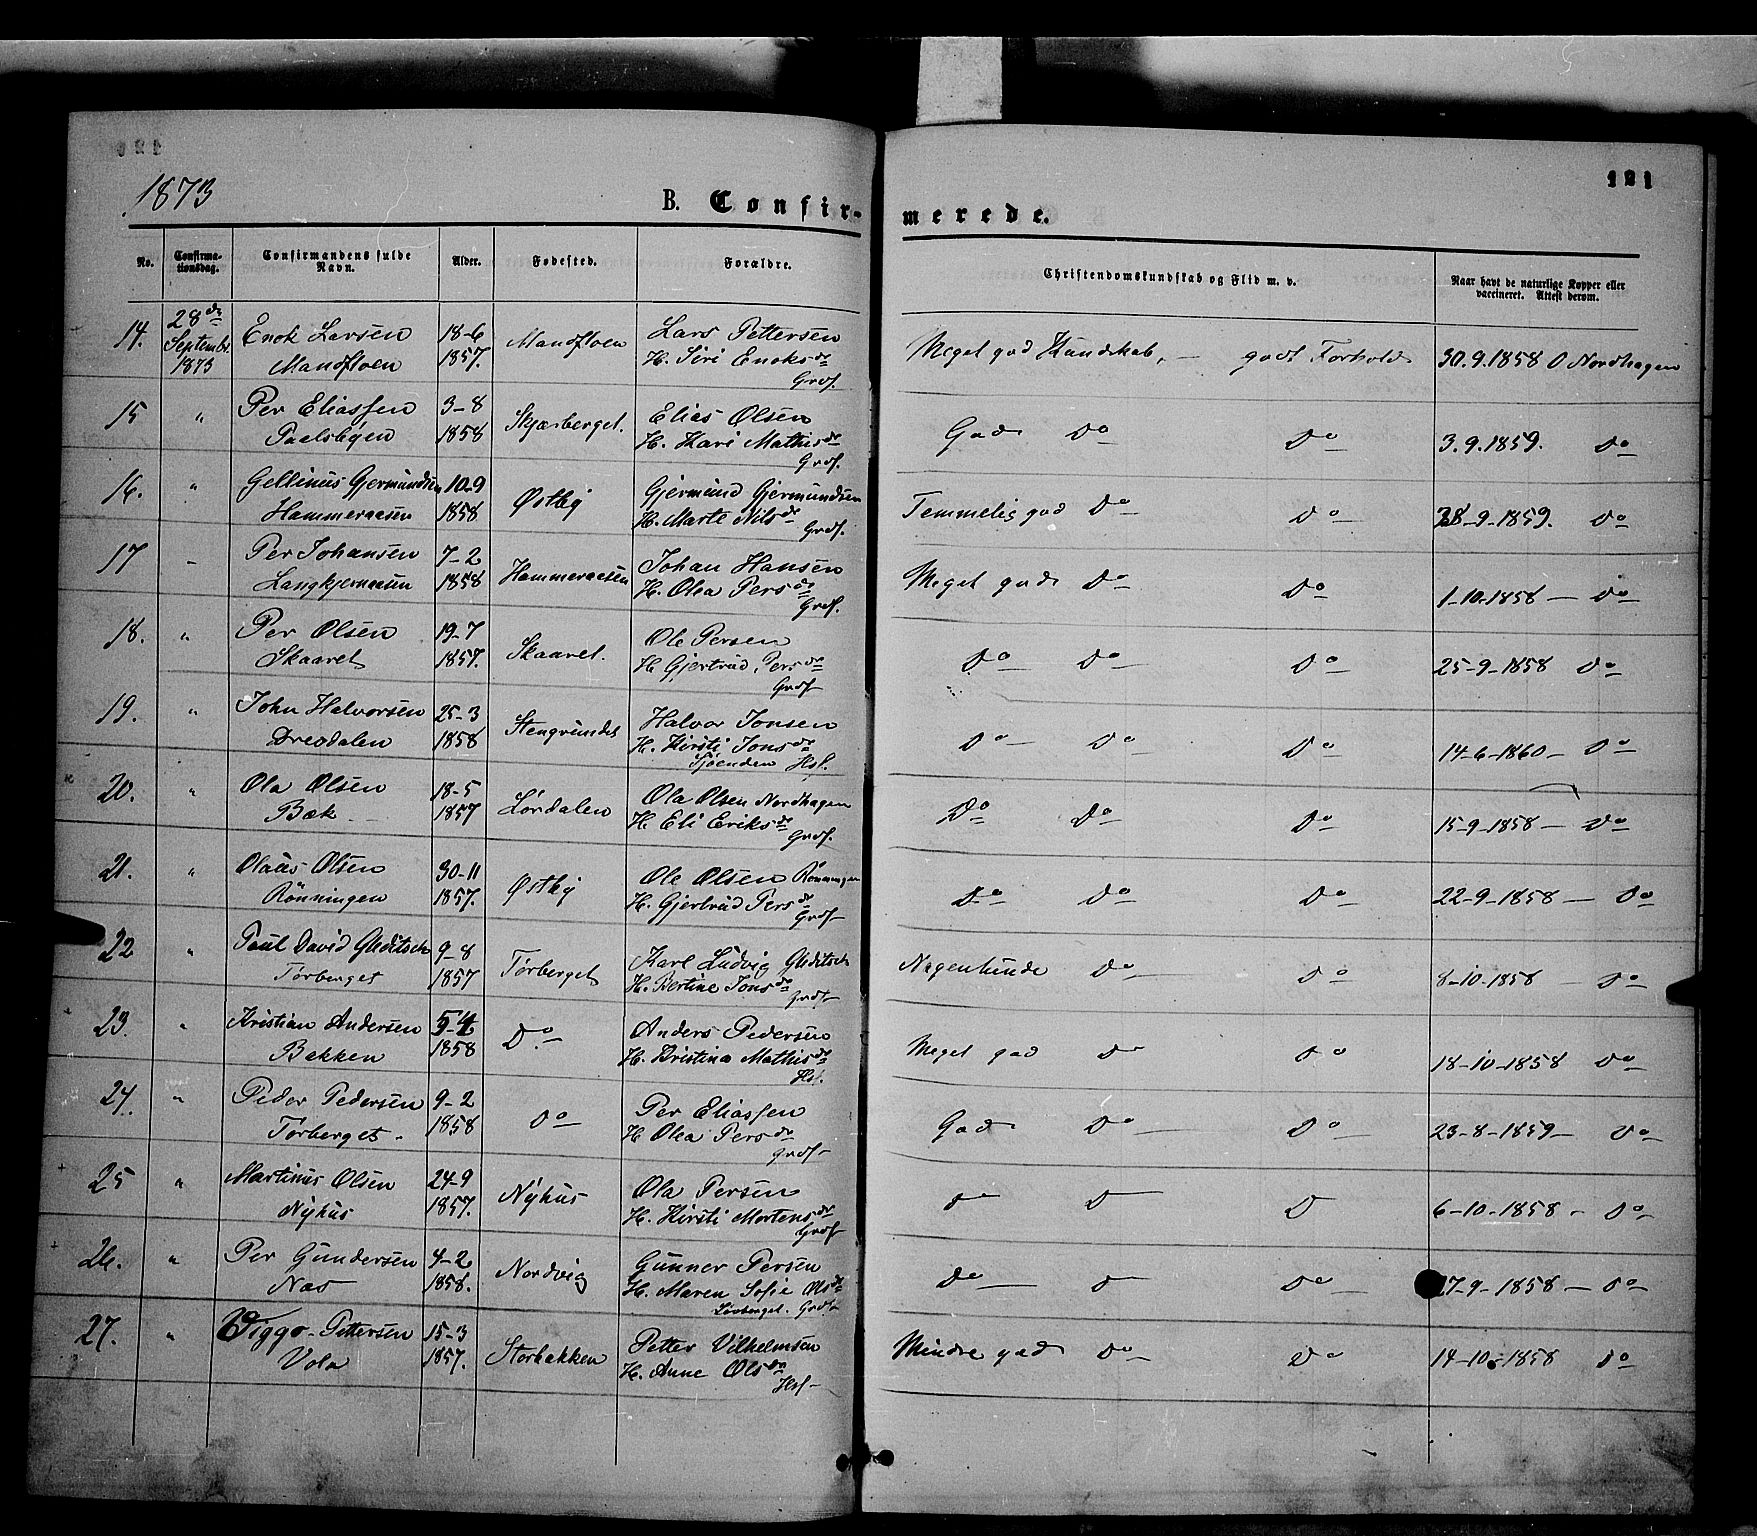 121
1873
B. Confirmerede.
No. Confirmationsdag. Confirmandens fulde Navn. Alder. Fødested. Forældre. Christendomskundskab og Flid m. v. Naar havt de naturlige Kopper eller vaccineret. Attest derom.
14. 28de Enok Larsen 18-6 Mandfloen Lars Pettersen Meget god Kundskab, — godt Forhold 30.9.1858 O Nordhagen
Septembr. 1873 Mandfloen 1857. H. Siri Enoksdr Grdf.
15 " Per Eliassen 3-8 Skjærberget. Elias Olsen God Do Do 3.9.1859. Do
Paalsbyen 1858 H. Kari Mathisdr Grdf.
16. " Gellinus Gjermundsen 10-9 Østby Gjermund Gjermundsen Temmelig god Do Do 28-9-1859. Do
Hammeraasen 1858 H. Marte Nilsdr Grdf.
17 - Per Johansen 7-2 Hammeraasen Johan Hansen Meget god Do Do 1-10-1858 — Do
Langkjernaasen 1858 H. Olea Persdr Grdf.
18. " Per Olsen 19-7 Skaaret. Ole Persen Do Do Do 25-9-1858 Do
Skaaret 1857. H. Gjertrud Persdr Grdf
19. " John Halvorsen 25-3 Stengrundet Halvor Jonsen Do Do Do 14-6-1860 — Do
Drevdalen 1858 H. Kirsti Jonsdr
Sjøenden Hsf.
20. " Ola Olsen 18-5 Lørdalen Ola Olsen Nordhagen Do Do Do 15-9-1858 — Do
Bæk 1857 H. Eli Eriksdr Grdf.
21. " Olaus Olsen 30-11 Østby Ole Olsen Rønningen Do Do Do 22-9-1858 — Do
Rønningen 1857. H. Gjertrud Persdr Grdf
22 " Paul David Gleditsch 9-8 Tørberget Karl Ludvig Gleditsch Nogenlunde Do Do 8-10-1858 — Do
Tørberget 1857 H. Bertine Jonsdr Grdf
23. " Kristian Andersen 5-4 Do Anders Pedersen Meget god Do Do 18-10-1858 Do
Bakken 1858 H. Kristina Mathisdr Hsf.
24. " Peder Pedersen 9-2 Do Per Eliassen God Do Do 23-8-1859 — Do
Tørberget. 1858 H. Olea Persdr Grdf
25 " Martinus Olsen 24-9 Nyhus Ola Persen D D D 6-10-1858 - Do
Nyhus 1857. H. Kirsti Mortensdr Grdf
26. " Per Gundersen 4-2 Nordvig Gunner Persen Do D Do 17-9-1858 — Do
Næs 1858. H. Maren Sofie Olsdr
Grdf
27. " Viggo Pettersen 15-3 Storbakken Petter Vilhelmsen Mindre god Do Do 14-10-1858 Do
Vola 1857. H. Anne Olsdr Hsf